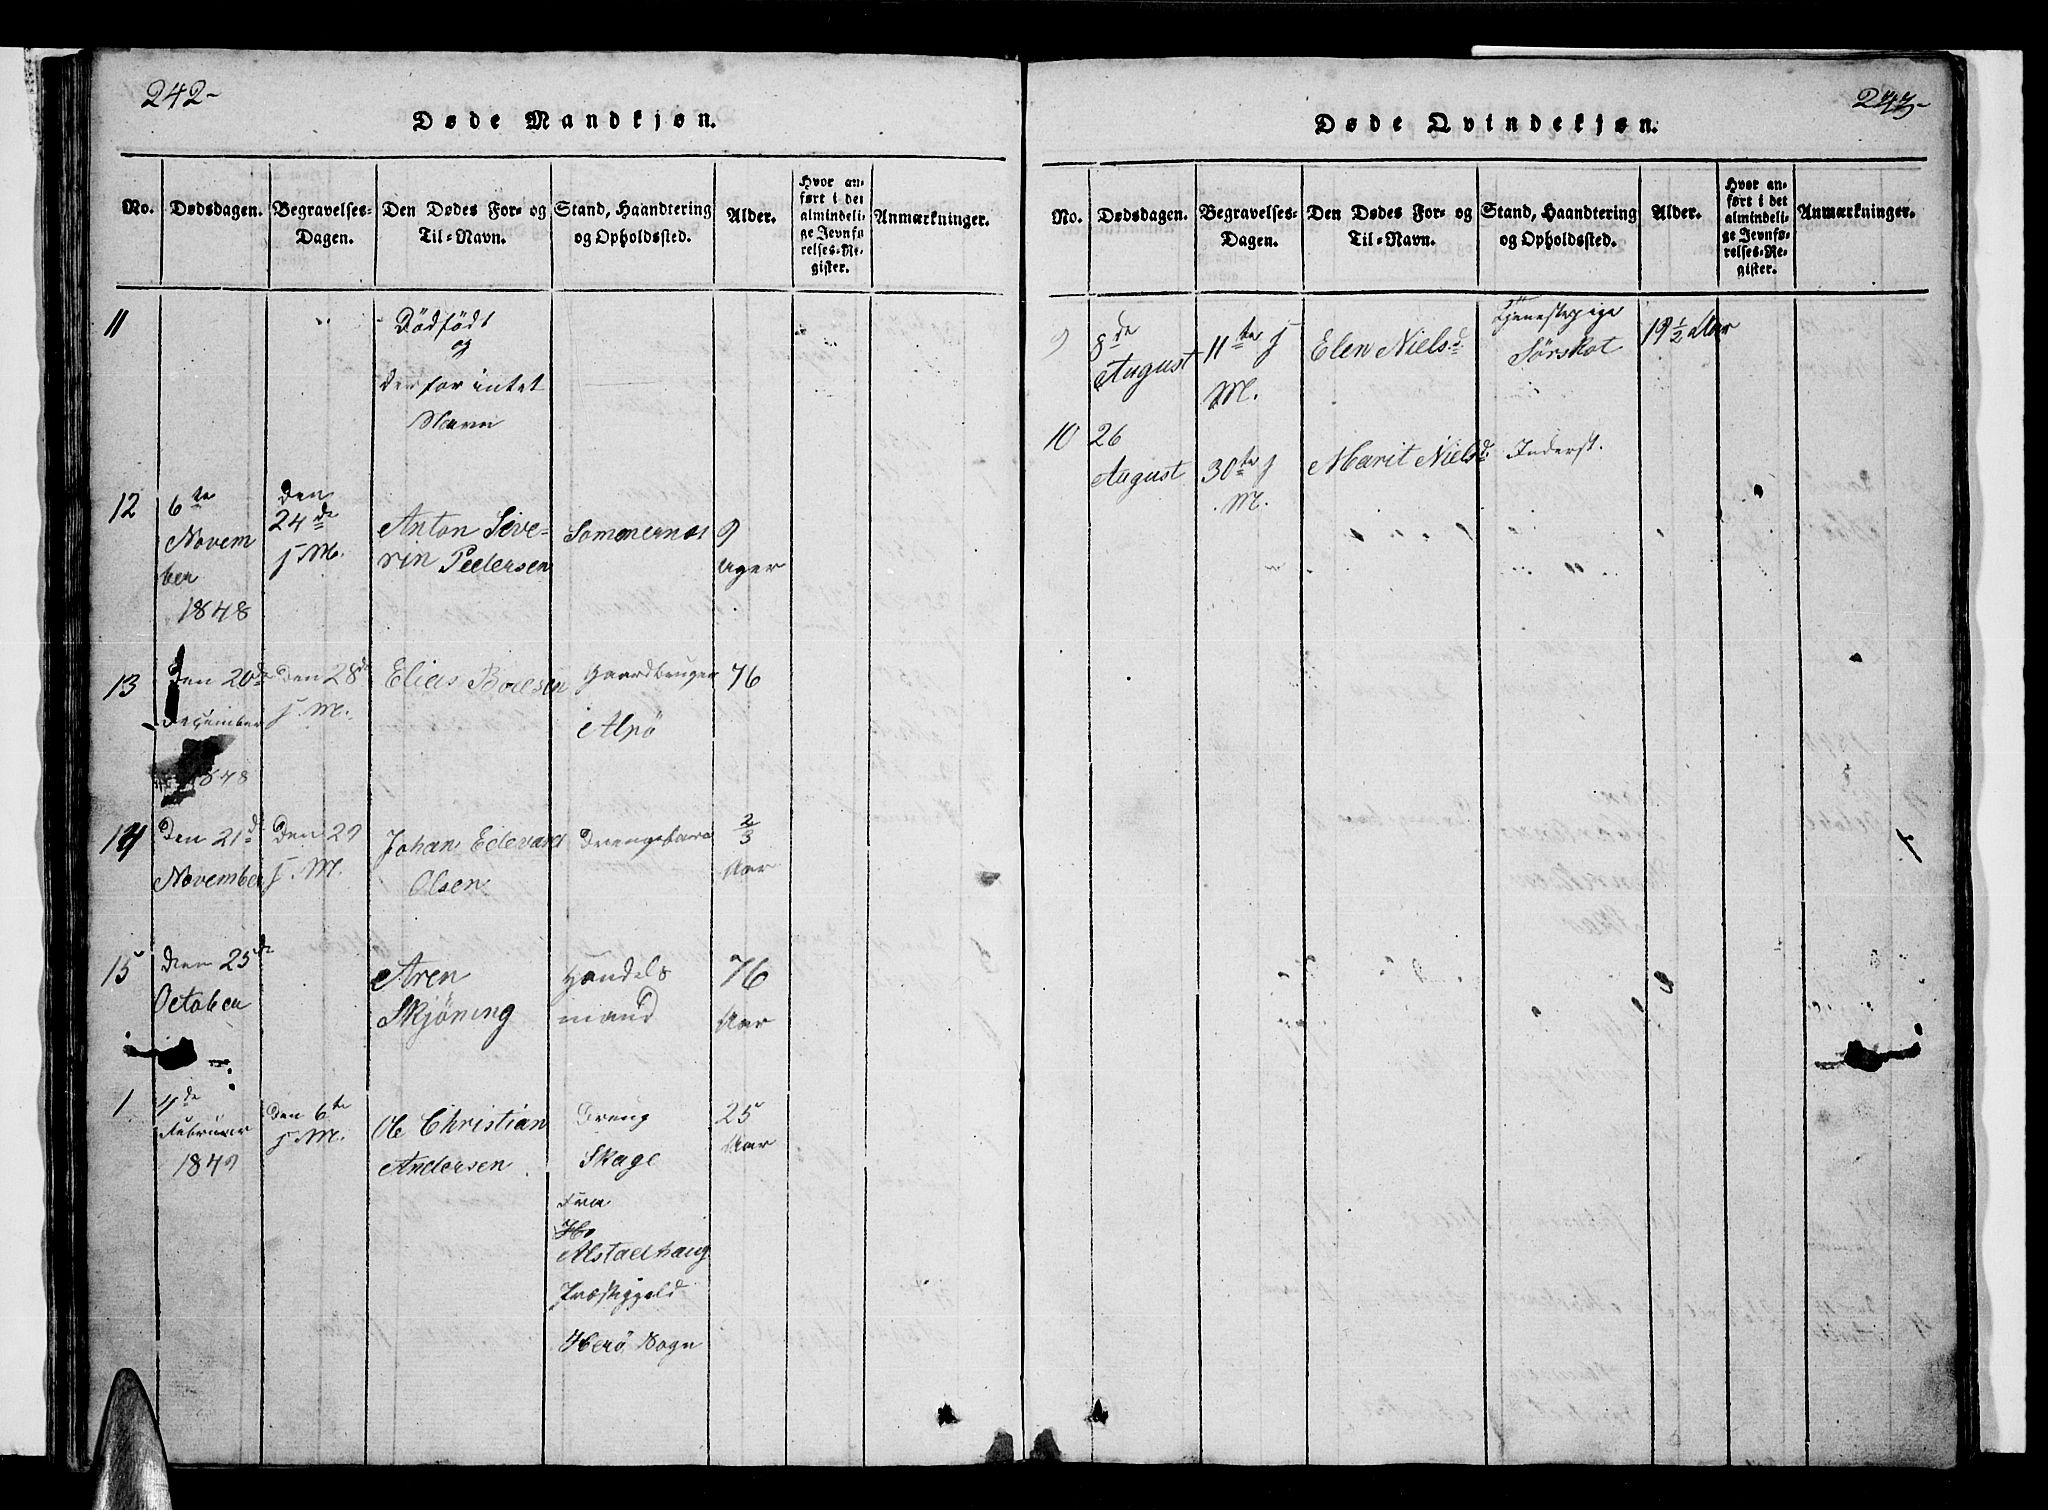 242-
Døde Mandkjøn.
No.
Dødsdagen.
Begravelses-
Dagen.
Den Dødes For- og
Til-Navn.
Stand, Haandtering
og Opholdssted.
Alder.
Hvor an-
ført i det
almindeli-
ge Jevnfø-
relses-Re-
gister.
Anmærkninger.
11
Dödfödt
og
derfor intet
Navn
12
6te
Novem
ber
1848
den
24de
j. M.
Anton Seve-
rin Pedersen
Sommernes
9
Uger
13
Den 20de
December
1848
Den 28de
j. M.
Elias Boelsen
Gaardbruger
Alnö
76
14
Den 21de
November
Den 29
j. M.
Johan Edevard
Olsen
Drengebarn
2/3
Aar
15
Den 25de
October
Aren
Skjöning
Handels
mand
76
Aar
1
4de
Februar
1849
Den 6te
j. M.
Ole Christian
Andersen
Dreng
Skage
Fra
Ho
Alstadhaug
Præstegjeld
Herö Sogn
25
Aar
243-
Døde Qvindekjøn.
No.
Dødsdagen.
Begravelses-
Dagen.
Den Dødes For- og
Til-Navn.
Stand, Haandtering
og Opholdssted.
Alder.
Hvor an-
ført i det
almindeli-
ge Jevnfø-
relses-Re-
gister.
Anmærkninger.
9
8de
August
11te j
M.
Elen Nielsd
Tjenestepige
Sörskot
19 1/2 Aar
10
26
August
30te j
M.
Marit Nielsd
Inderst.